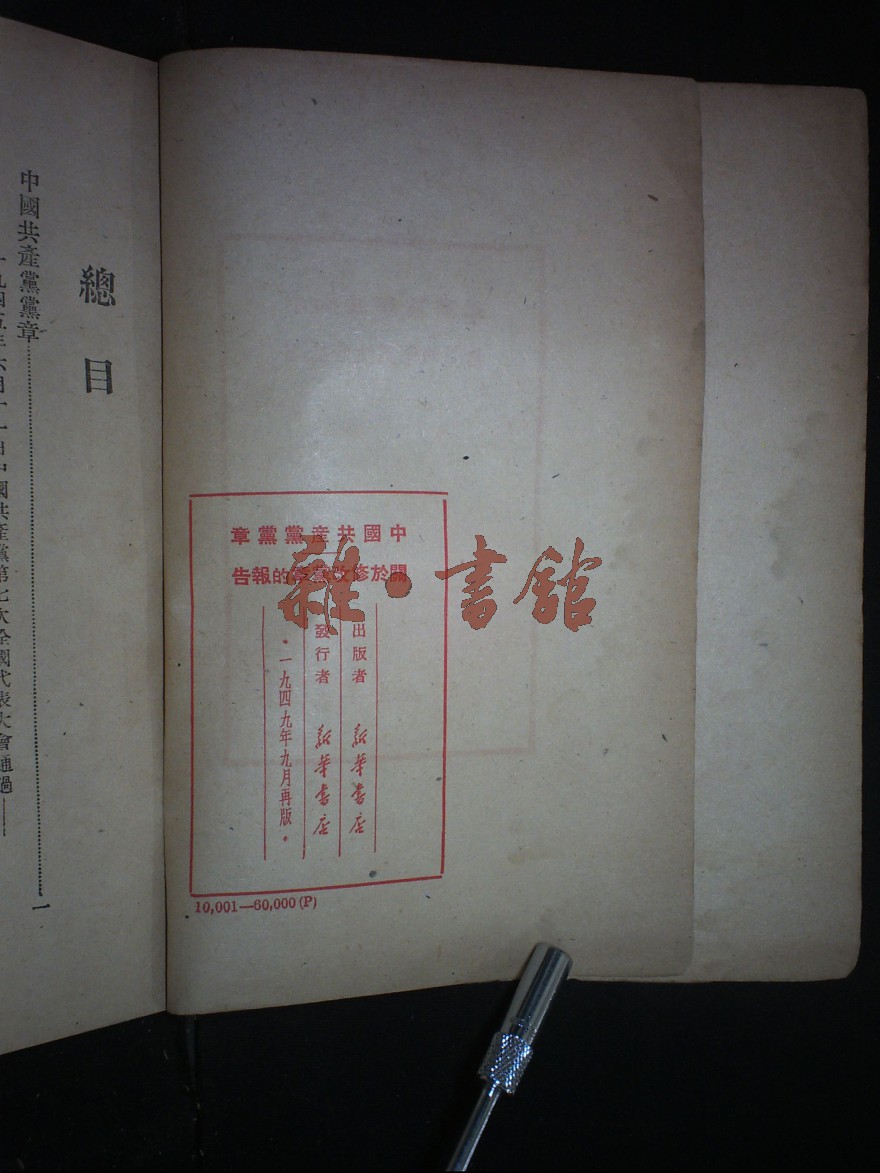 中國共産黨黨章
關於修改黨章的報告
出版者 新華書店
發行者 新華書店
·一九四九年九月再版·
10,001—60,000 (P)
雜·書館
總目
中國共產黨黨章……一
一九四五年六月十一日中國共產黨第七次全國代表大會通過——